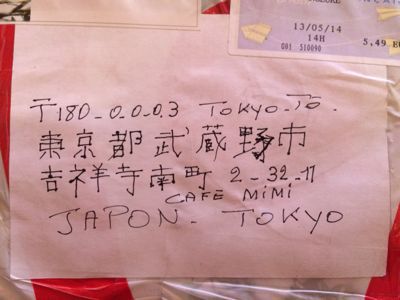 13/05/14
14H
001 510090
5,49 EU
〒180-0.0.0.3 TOKYO-TO-
東京都武蔵野市
吉祥寺南町 2-32-11
CAFE MIMI
JAPON- TOKYO